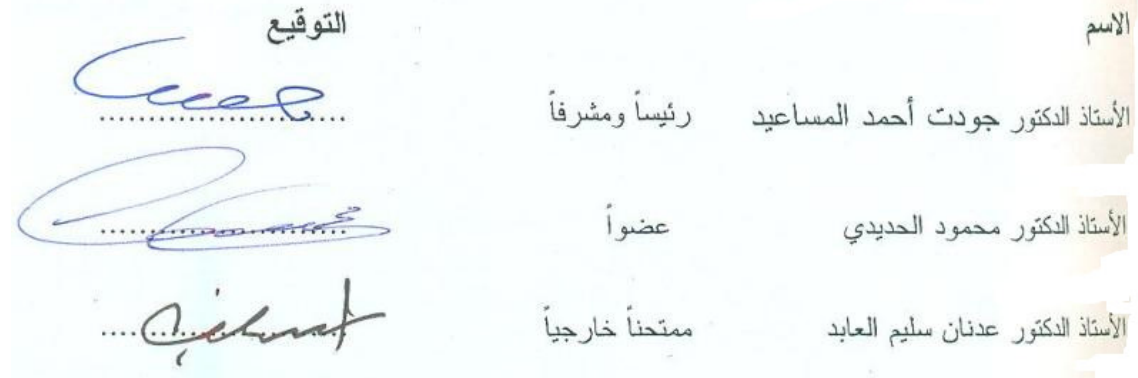 الاسم التوقيع
الأستاذ الدكتور جودت أحمد المساعيد رئيساً ومشرفاً ......................
الأستاذ الدكتور محمود الحديدي عضواً ......................
الأستاذ الدكتور عدنان سليم العابد ممتحناً خارجياً ......................